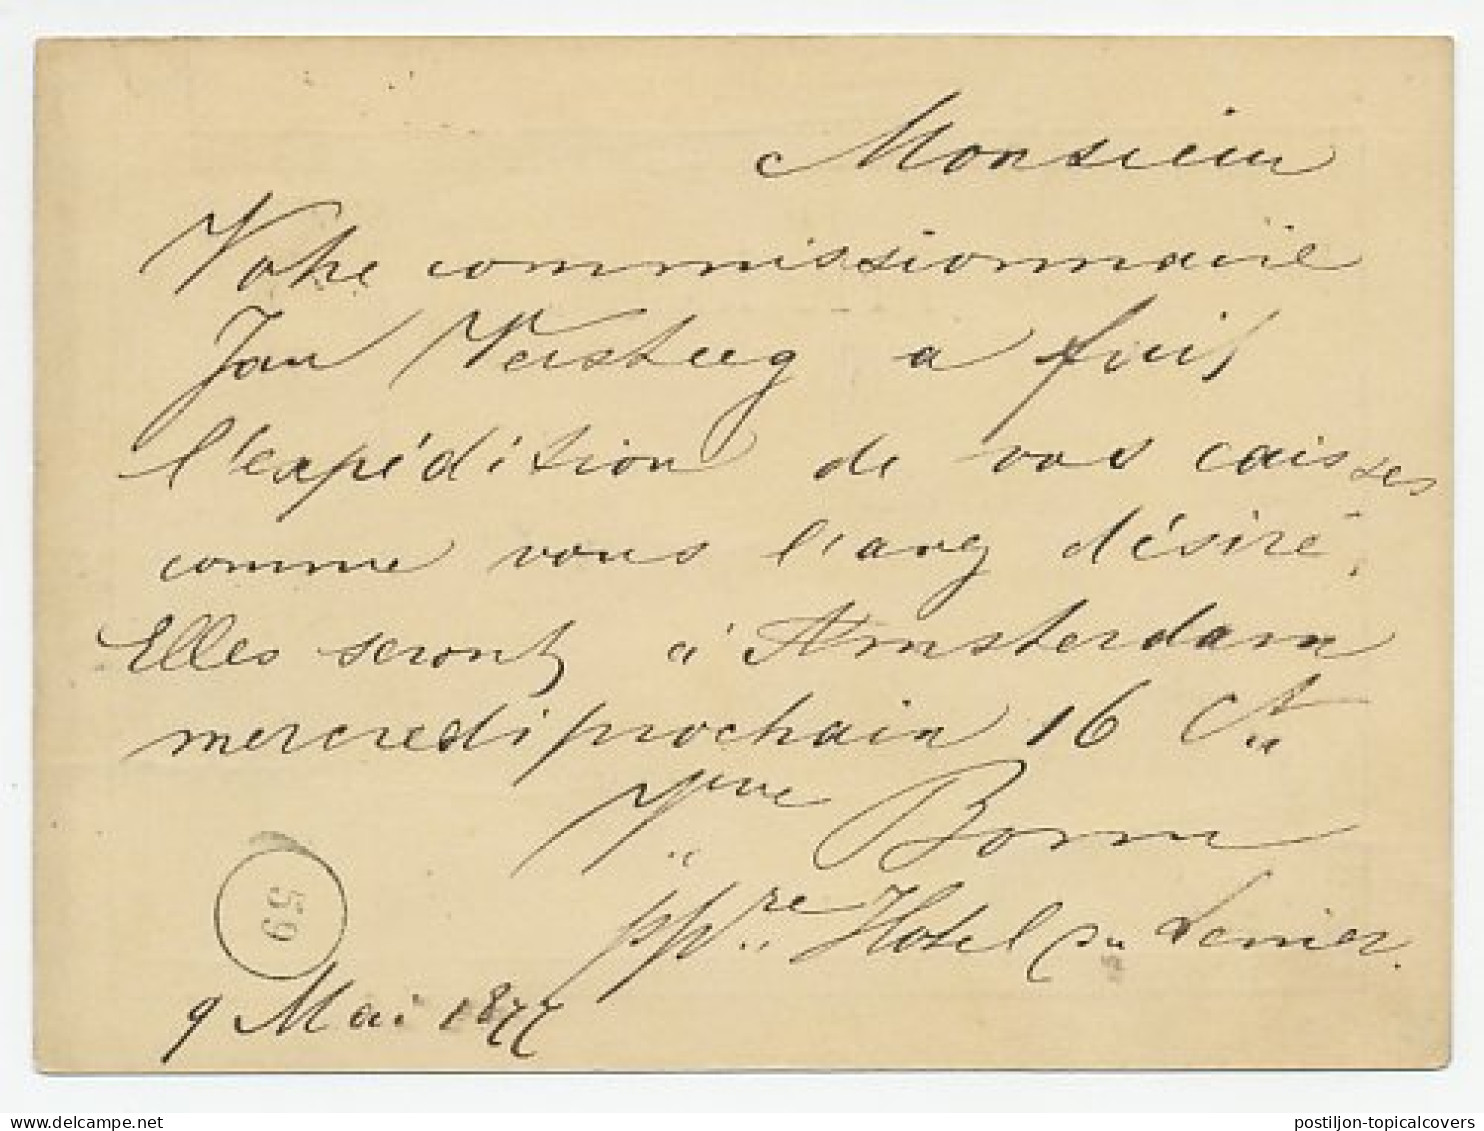 Monsieur
Votre commissionnaire
Jan Versteeg a fait
l'expédition de vos caisses
comme vous l'avez désiré,
Elles seront à Amsterdam
mercredi prochain 16 Ct
Vve Borm
pp.re Hotel du
59
9 Mai 1877
delcampe.net
postiljon-topicalcovers